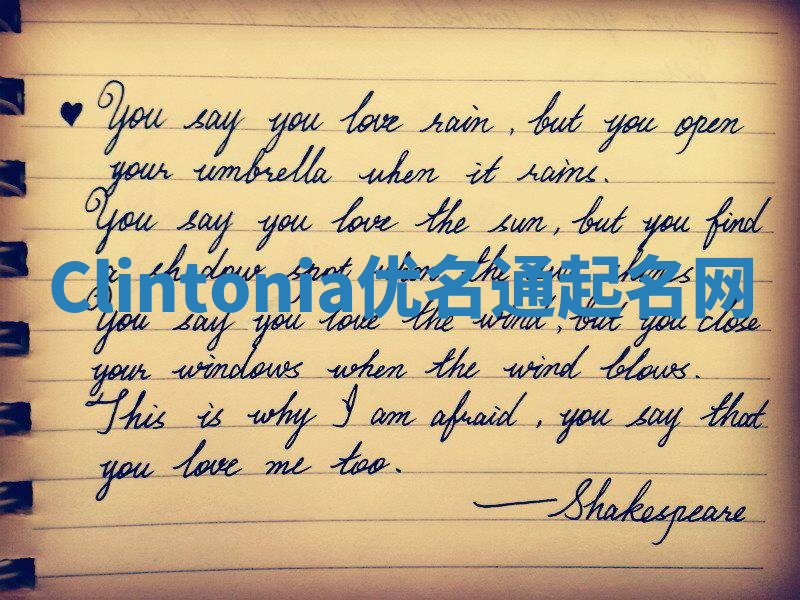 ♥ You say you love rain, but you open
your umbrella when it rains.
You say you love the sun, but you find
a shadow spot when the sun shines
Clintonia优名通起名网
You say you love the wind, but you close
your windows when the wind blows.
This is why I am afraid, you say that
you love me too.
—Shakespeare